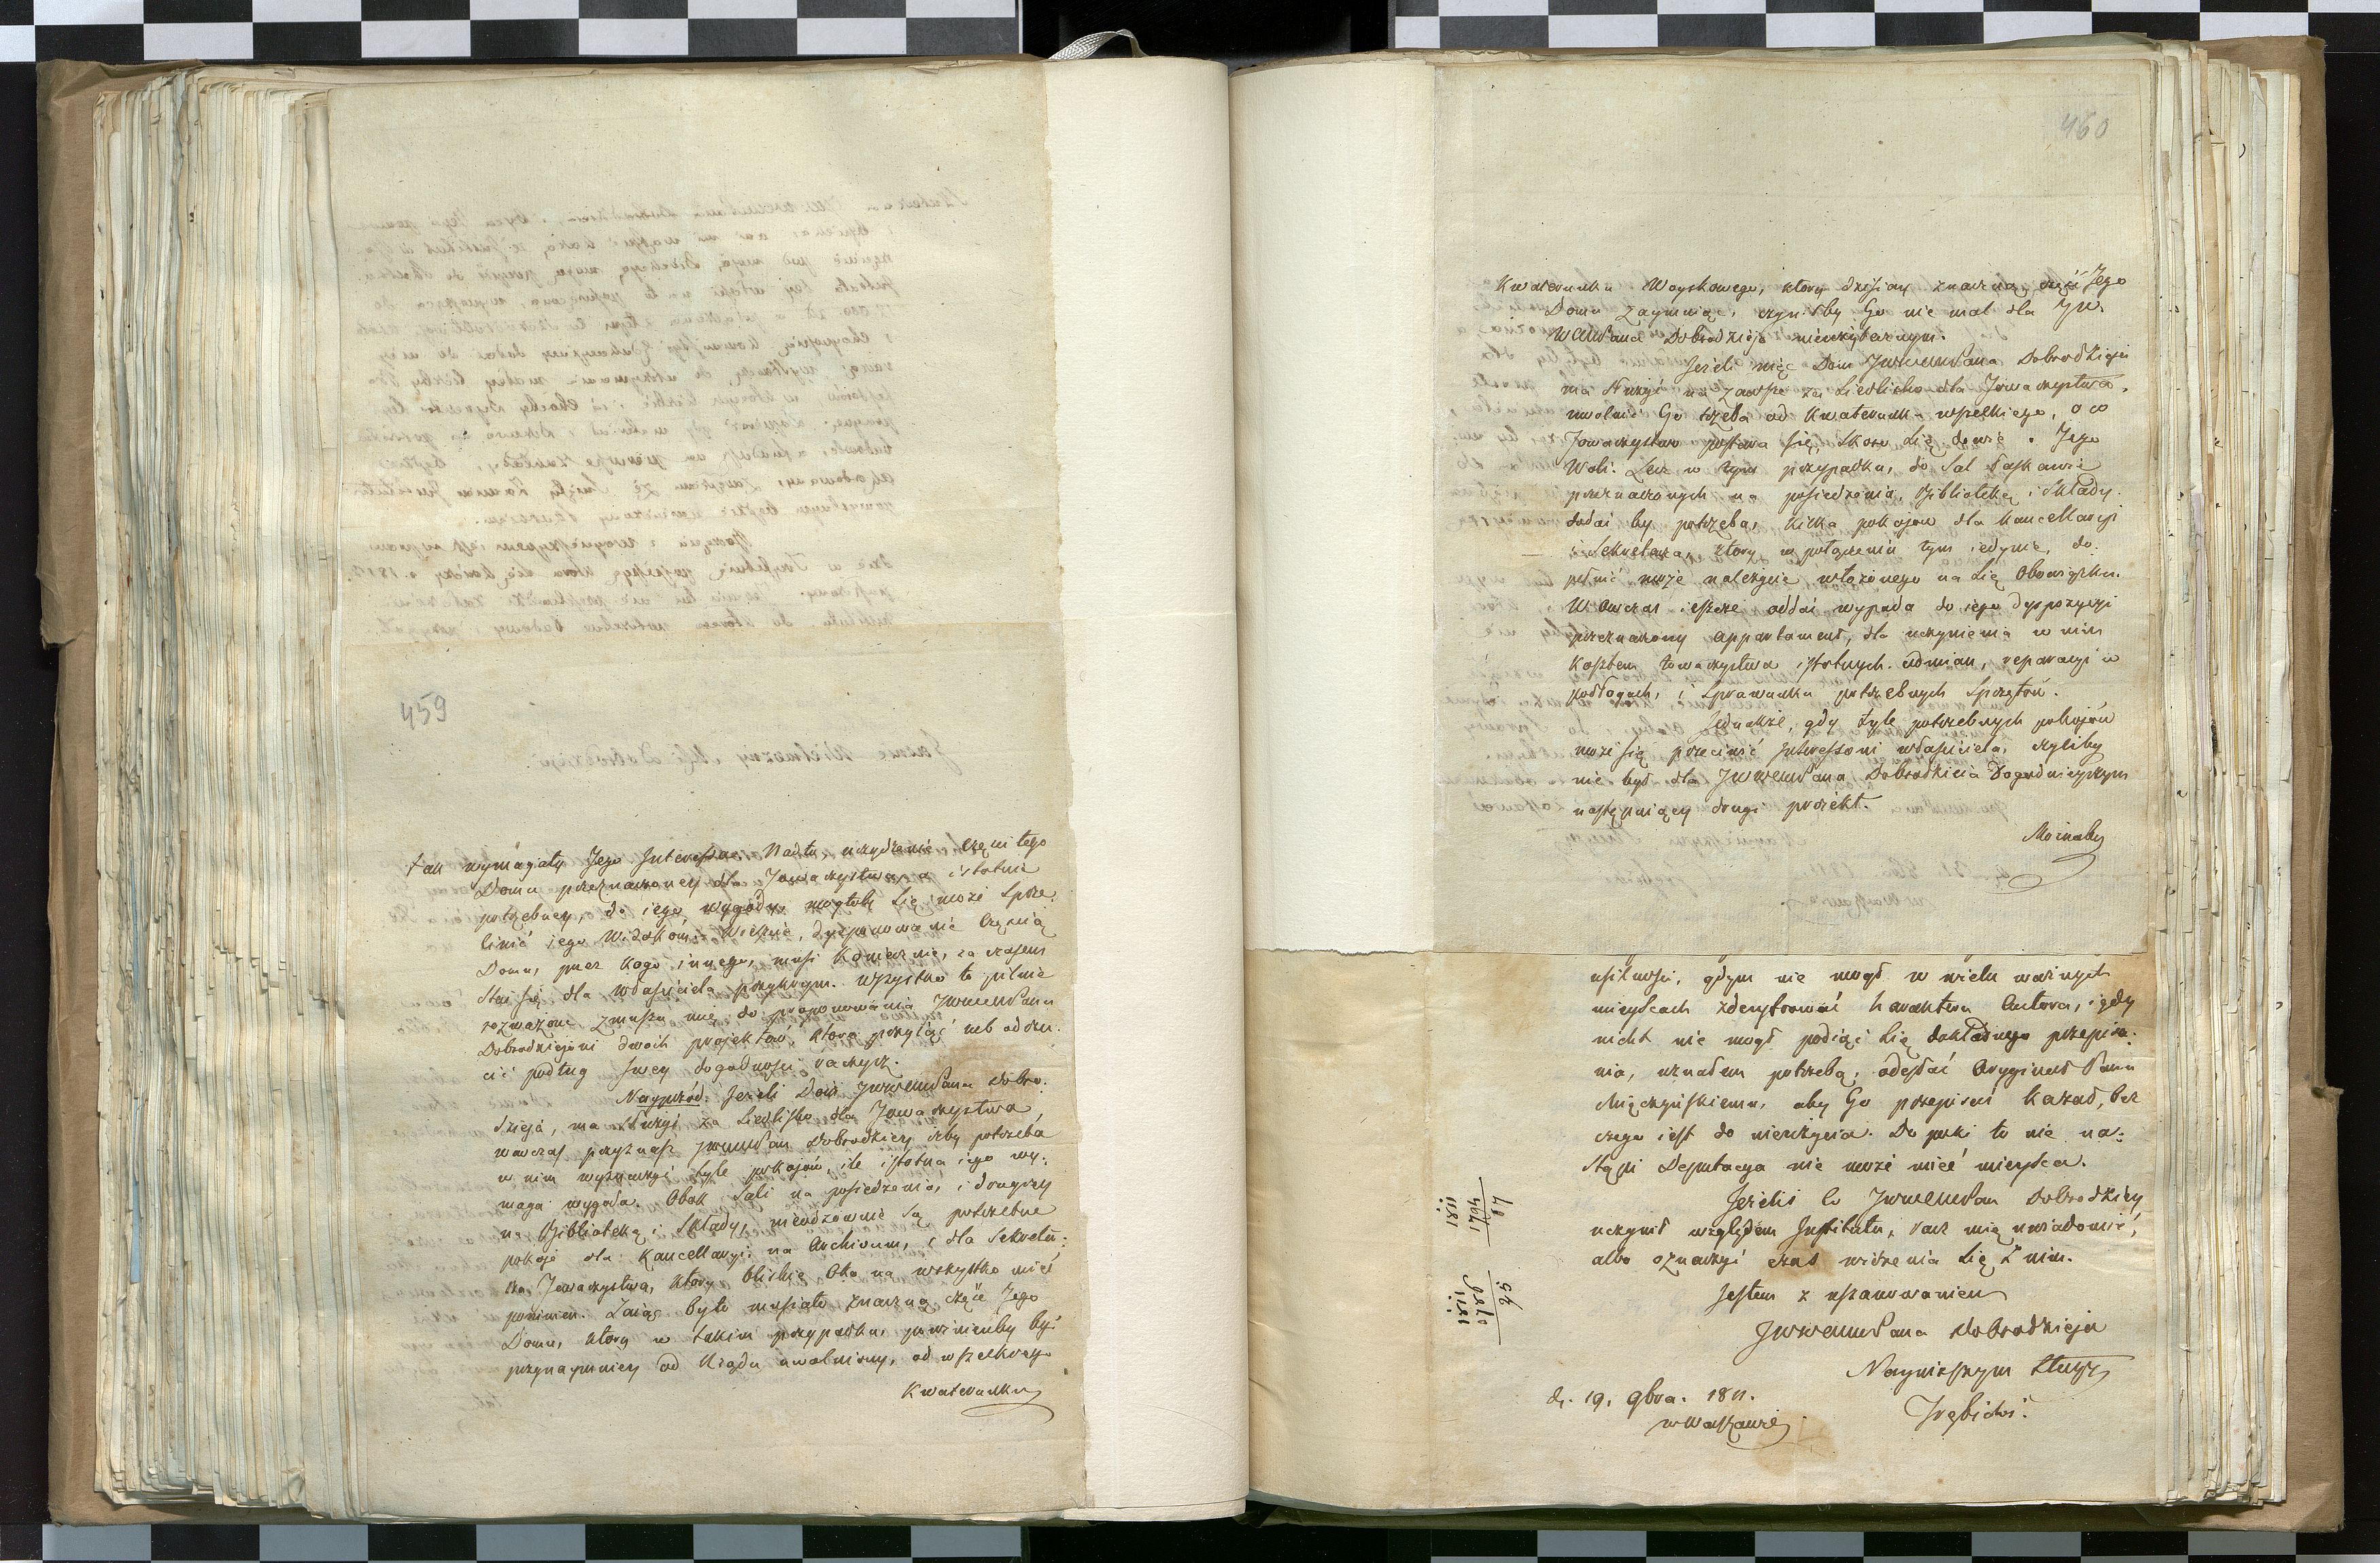 459
tak wymagały Jego Interessa. Nadto, urządzenie części tego
Domu przeznaczoney dla Towarzystwa, a istotnie
potrzebney, do iego wygody, mogłoby się może sprze:
liwić iego Widokóm. Wieczne, dysponowanie Częścią
Domu, przez kogo innego, musi koniecznie, za czasem
Stać się dla właściciela przykrym. Wszystko to pilnie
rozważone zmusza mię do proponowania JWWMPanu
Dobrodziejowi dwóch projektów, które przyiąć lub odrzu:
cić podług swey dogodności raczysz.
Nayprzód: Jeżeli Dom JWWMPana Dobro:
dzieja, ma służyć za Siedlisko dla Towarzystwa,
wówczas przyznasz JWWMPan Dobrodziey iżby potrzeba
w nim wyznaczyć tyle pokojów, ile istotna iego wy:
maga wygoda. Obok Sali na posiedzenia, i drugiey
na Bibliotekę i Składy, niewdzownie są potrzebne
pokoje dla Kancellaryi na Archivum, i dla Sekreta:
rza Towarzystwa, który bliskie Oko na wszystko mieć
powinien. Zaiąć by to musiało znaczną część Jego
Domu, który w takim przypadku, powinienby być
przynaymniey od Rządu uwolniony, od wszelkiego
Kwaterunku
460
Kwaterunku Woyskowego, który dzisiay znaczną część Jego
Domu zaymuiąc, czyniłby Go nie mal dla JW
WMPana Dobrodzieja nieużytecznym.
Jeżeli więc Dom JWWMPana Dobrodzieja
ma służyć na zawsze za Siedlisko dla Towarzystwa,
uwolnić Go trzeba od Kwaterunku wszelkiego, o co
Towarzystwo postara się, skoro się dowie o Jego
Woli. Lecz w tym przypadku, do Sal łaskawie
przeznaczonych na posiedzenia, Bibliotekę i Składy
dodać by potrzeba, kilka pokojów dla Kancellaryi
i Sekretarza, który w połączeniu tym iedynie, do:
pełnić może należycie włożonego na się Obowiązku.
Wówczas ieszcze oddać wypada do iego dyspozycyi
przeznaczony appartament, dla uczynienia w nim
kosztem towarzystwa istotnych odmian, reparacyi w
podłogach, i sprawunku potrzebnych sprzętów.
Jednakże, gdy tyle potrzebnych pokojów
może się przeciwić Interessowi właściciela, czyliby
nie był dla JWWMPana Dobrodzieia dogodnieyszym
następuiący drugi projekt.
Możnaby
usilności, gdym nie mogł w wielu ważnych
mieyscach zdeszyfrować harakteru Autora, i gdy
nicht nie mogł podiąć się dokładnego przepisa:
nia, uznałem potrzebę, odesłać Oryginał Panu
Mięczyńskiemu, aby Go przepisać kazał, bez
czego iest do nieużycia. Do puki to nie na:
stąpi Deputacya nie może mieć mieysca.
Jeżeliś co JWWMWPan Dobrodziey
uczynił względem Institutu, racz mię uwiadomić,
albo oznaczyć czas widzenia się z nim.
Jestem z uszanowaniem
JWWWMWPana Dobrodzieja
Nayniższym Sługą
d. 19. 9bra. 1811.
w Warszawie
1811
1764
1811